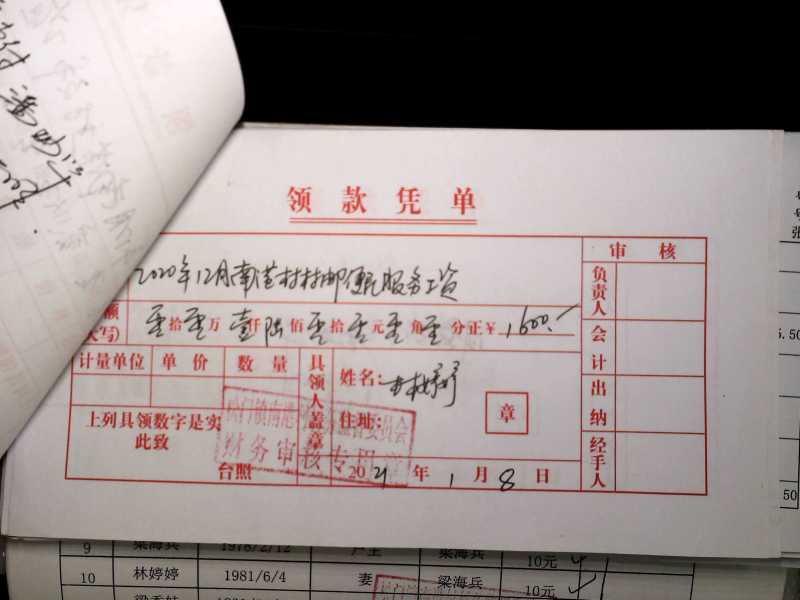 领款凭单
2020年12月南港村村邮便民服务工资
额
大写) 零拾零万壹仟陆佰零拾零元零角零分正¥1600.-
计量单位 单价 数量
具领人盖章
姓名:林婷婷
住址:
章
上列具领数字是实
此致
台照
2021年1月8日
审核
负责人
会计
出纳
经手人
财务审核专用章
5.50
50
9 梁海兵 1978/2/12 户主 梁海兵 10元
10 林婷婷 1981/6/4 妻 梁海兵 10元